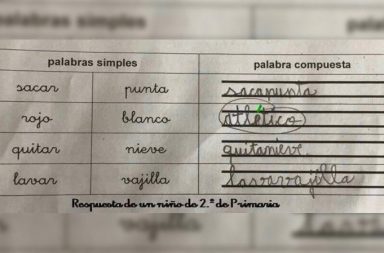 palabras simples
palabras simples palabra compuesta
sacar punta sacapunta
rojo blanco atlético
quitar nieve quitanieve
lavar vajilla lavavajilla
Respuesta de un niño de 2.º de Primaria